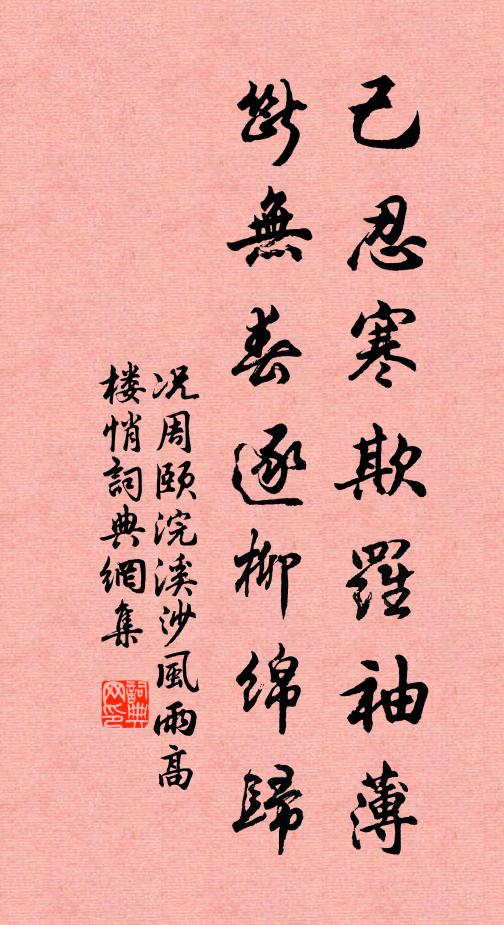 已忍寒欺羅袖薄
斷無春逐柳綿歸
况周頤浣溪沙風雨高
楼悄詞典網集
詞典
网印